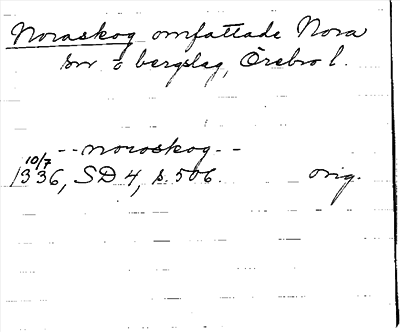 Noraskog omfattade Nora
sn o bergslag, Örebro l.
-- noroskog --
10/7
1336, SD 4, s. 506. orig.